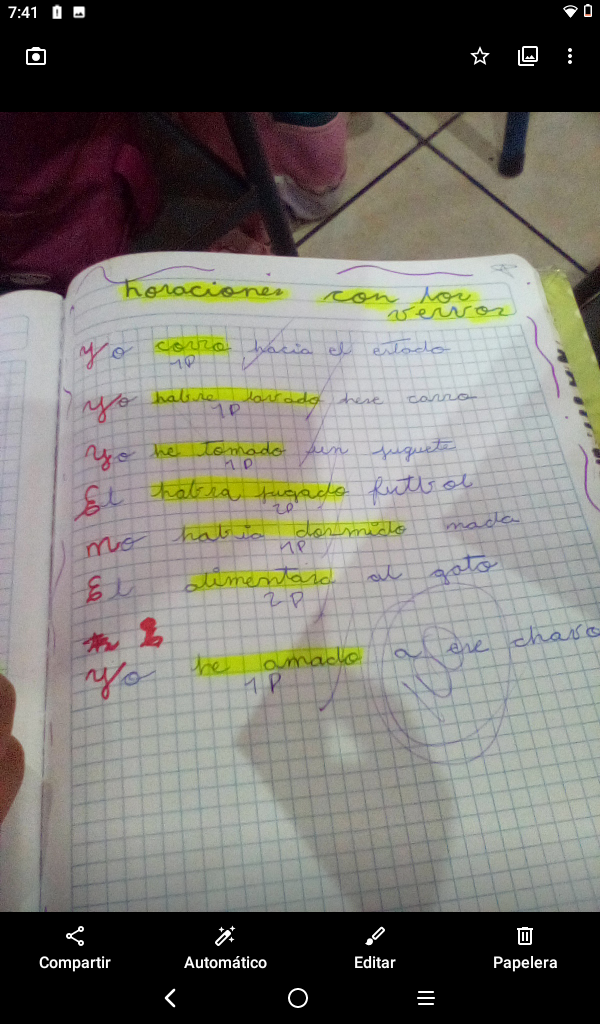 7:41
horaciones con los
vervos
Yo corro hacia el estado
1P
Yo habre lavado hese carro
1P
Yo he tomado un juguete
1P
El habra jugado futbol
2P
no habria dormido nada
1P
El alimentara al gato
2P
Yo he amado a ese chavo
1P
Compartir
Automático
Editar
Papelera